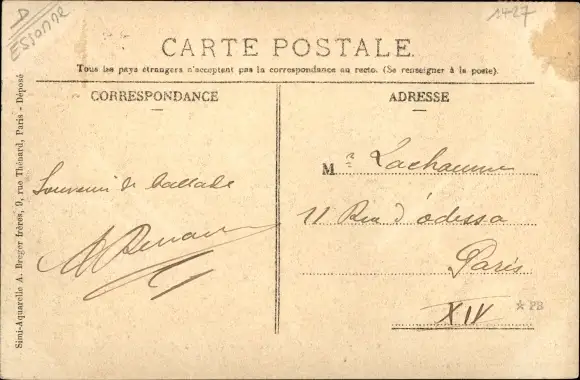 D
ESSONNE
1427
CARTE POSTALE
Tous les pays étrangers n'acceptent pas la correspondance au recto. (Se renseigner à la poste).
CORRESPONDANCE
ADRESSE
Simi-Aquarelle A. Breger frères, 9, rue Thénard, Paris - Déposé
Souvenir de ballade
Mr Lachaume
11 Rue d'odessa
Paris
XIV
* PB